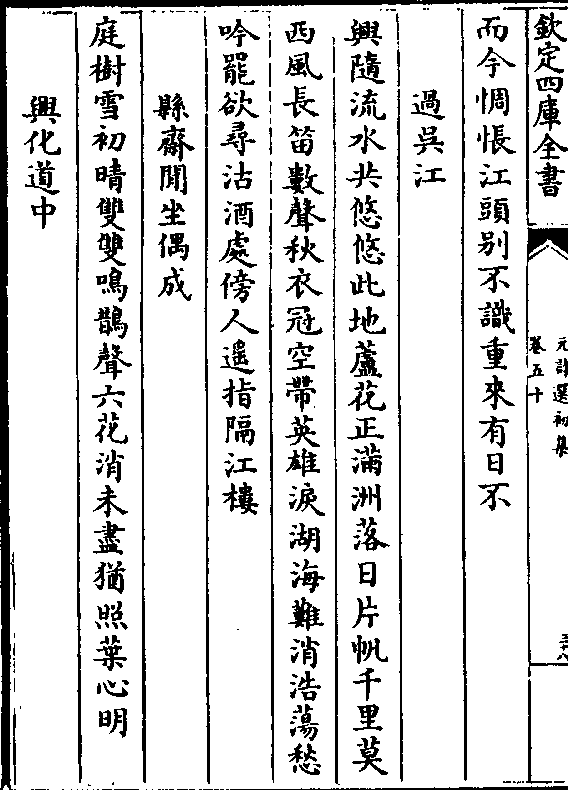 欽定四庫全書
元詩選初集
卷五十
而今惆悵江頭别不識重來有日不
過吳江
興隨流水共悠悠此地蘆花正滿洲落日片帆千里莫
西風長笛數聲秋衣冠空帶英雄淚湖海難消浩蕩愁
吟罷欲尋沽酒處傍人遥指隔江樓
縣齋閒坐偶成
庭樹雪初晴雙雙鳴鵲聲六花消未盡猶照葉心明
興化道中